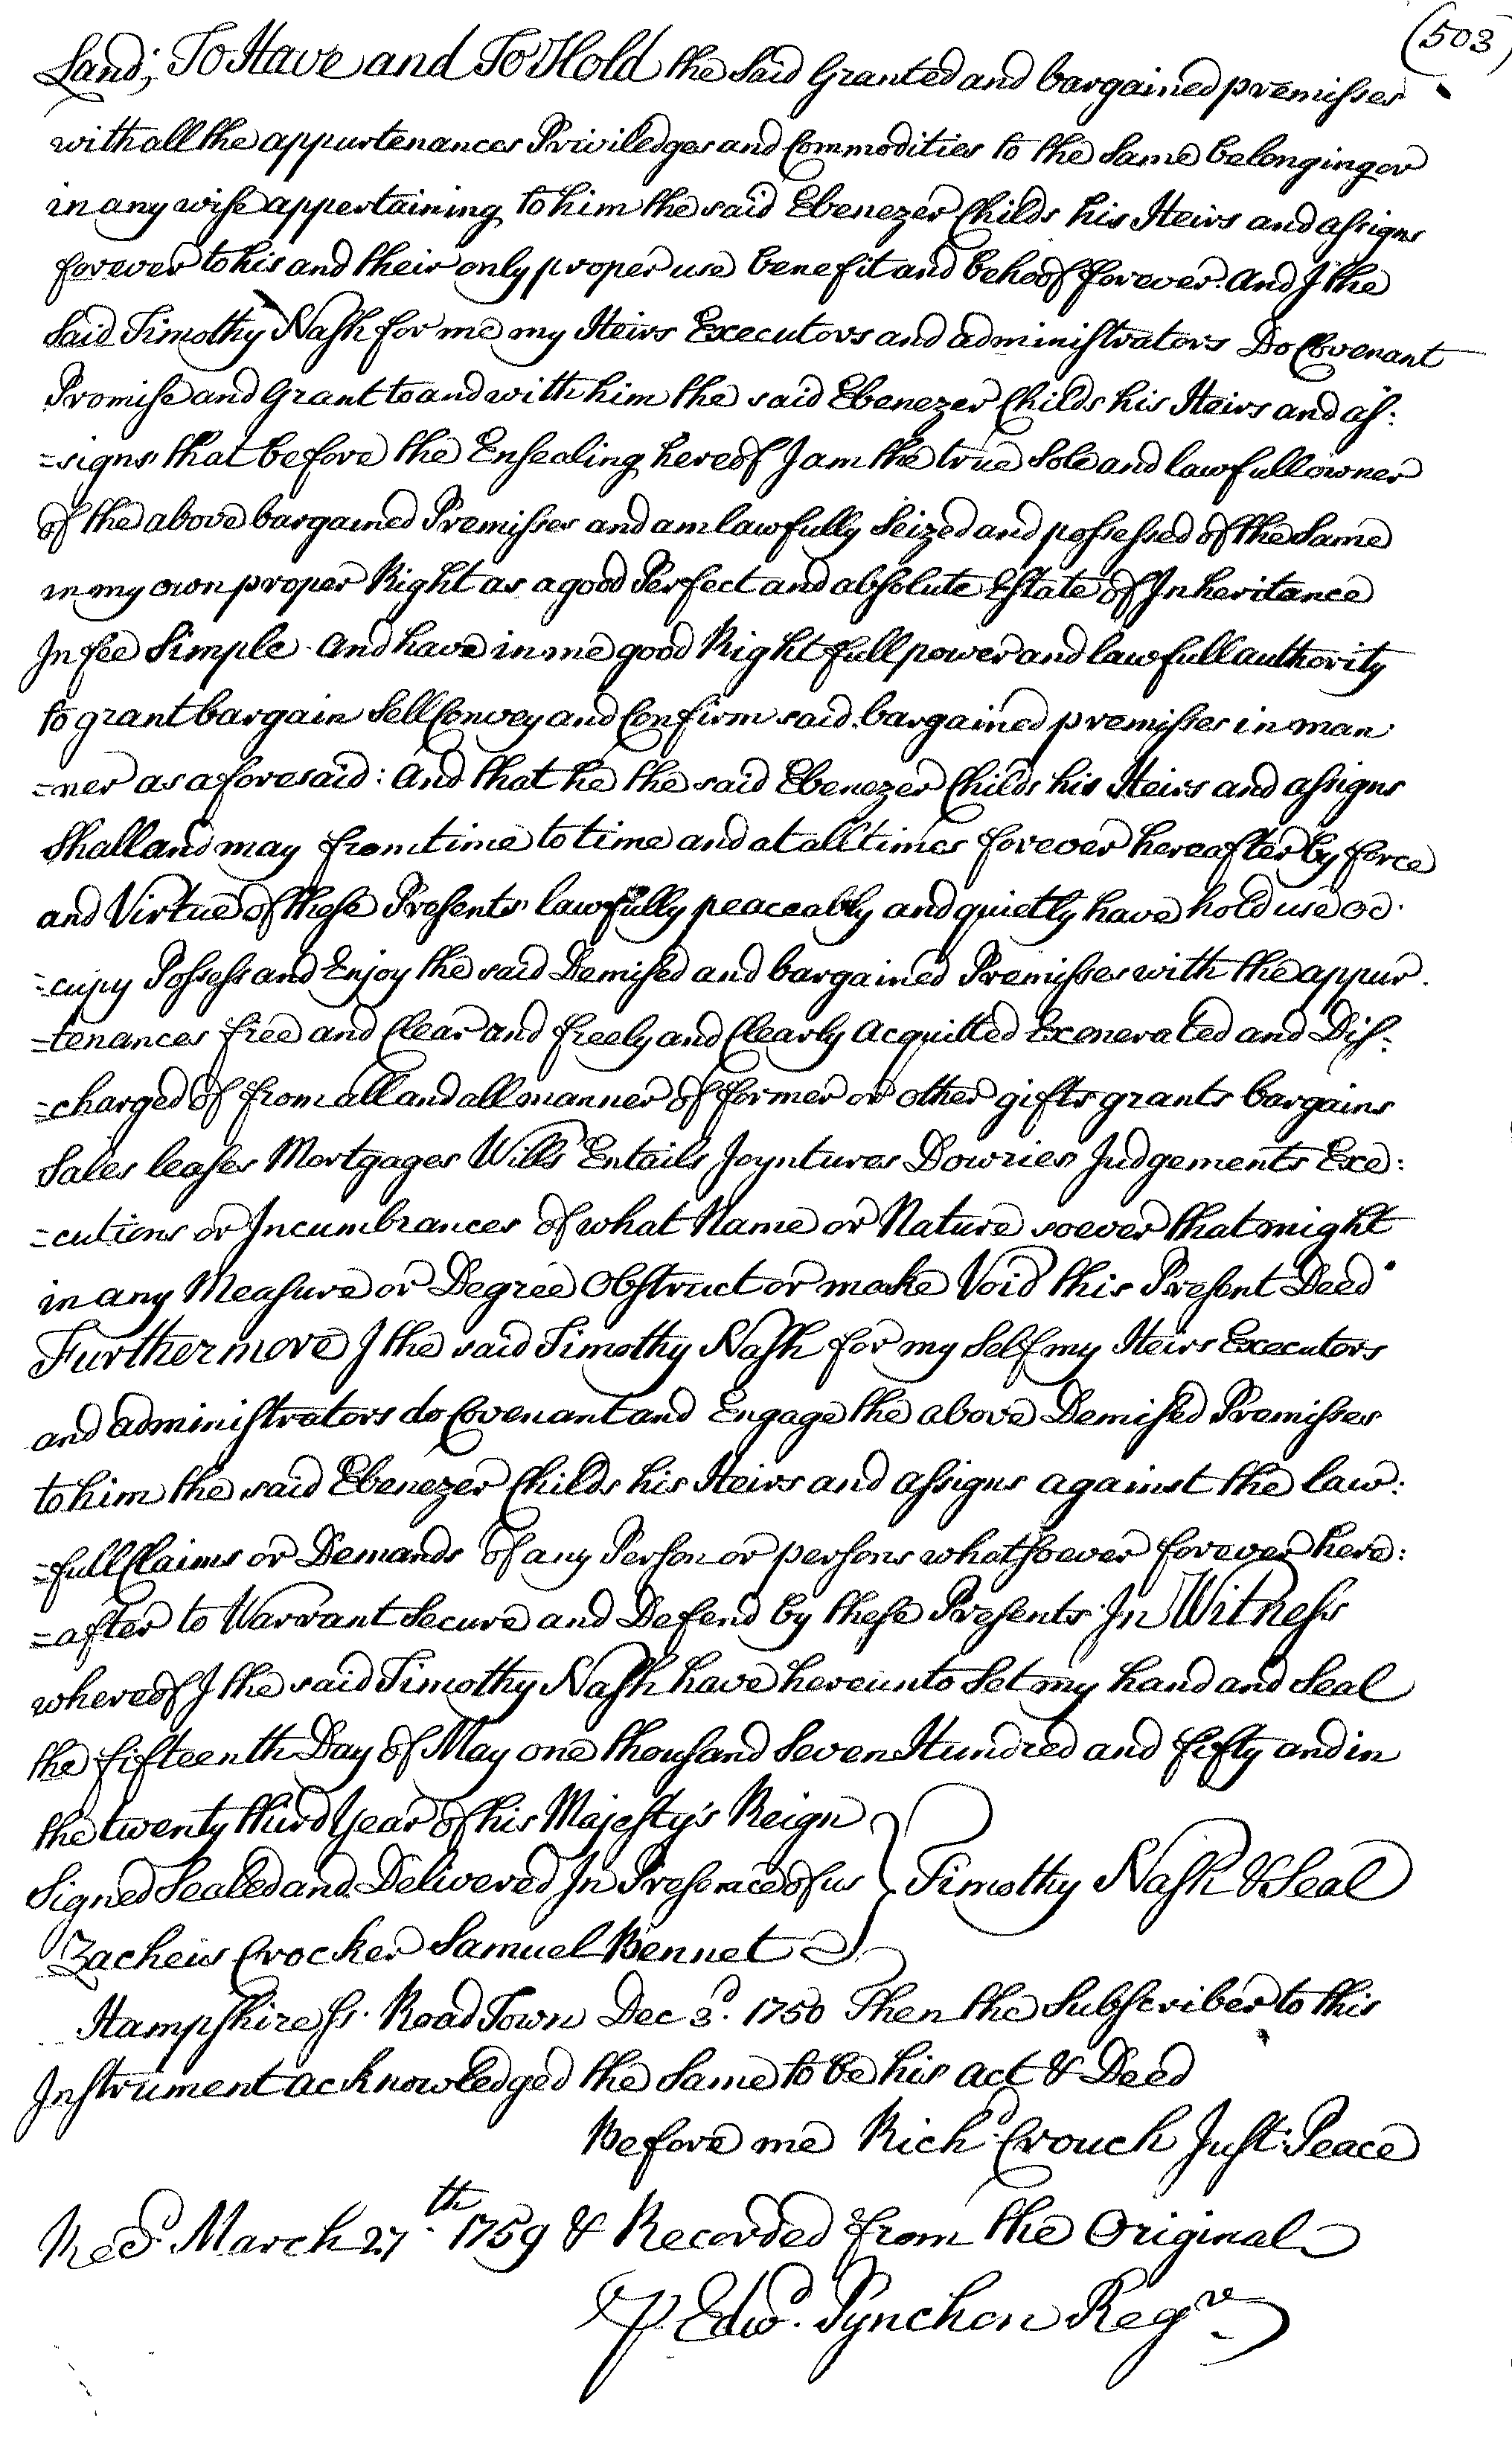 (503)
Land; To Have and To Hold the Said Granted and bargained premisses
with all the appurtenances Priviledges and Commodities to the Same belonging or
in any wise appertaining to him the said Ebenezer Childs his Heirs and assigns
forever to his and their only proper use benefit and behoof forever. And I the
Said Timothy Nash for me my Heirs Executors and administrators Do Covenant
Promise and Grant to and with him the said Ebenezer Childs his Heirs and as:
=signs that before the Ensealing hereof I am the true Sole and lawfull owner
of the above bargained Premisses and am lawfully Seized and possessed of the Same
in my own proper Right as a good Perfect and absolute Estate of Inheritance
In fee Simple. And have in me good Right full power and lawfull authority
to grant bargain Sell Convey and Confirm said bargained premisses in man
=ner as aforesaid: And that he the said Ebenezer Childs his Heirs and assigns
Shall and may from time to time and at all times forever hereafter by force
and Virtue of these Presents lawfully peaceably and quietly have hold use oc
=cupy Possess and Enjoy the said Demised and bargained Premisses with the appur
=tenances free and Clear and freely and Clearly Acquitted Exonerated and Dis:
=charged of from all and all manner of former or other gifts grants bargains
Sales leases Mortgages Wills Entails Joyntures Dowries Judgements Exe:
=cutions or Incumbrances of what Name or Nature soever that might
in any Measure or Degree Obstruct or make Void this Present Deed
Furthermore I the said Timothy Nash for my Self my Heirs Executors
and administrators do Covenant and Engage the above Demised Premisses
to him the said Ebenezer Childs his Heirs and assigns against the law:
=full Claims or Demands of any Person or persons whatsoever forever here:
=after to Warrant Secure and Defend by these Presents. In Witness
whereof I the said Timothy Nash have hereunto Set my hand and Seal
the fifteenth Day of May one thousand Seven Hundred and fifty and in
the twenty third Year of his Majesty's Reign
Signed Sealed and Delivered In Presence of us } Timothy Nash & Seal
Zacheus Crocker Samuel Bennet
Hampshire ss. Road Town Dec 3d. 1750 Then the Subscriber to this
Instrument acknowledged the Same to be his act & Deed
Before me Richd. Crouch Just: Peace
Recd. March 27th 1759 & Recorded from the Original
P Edwd. Pynchon Regr